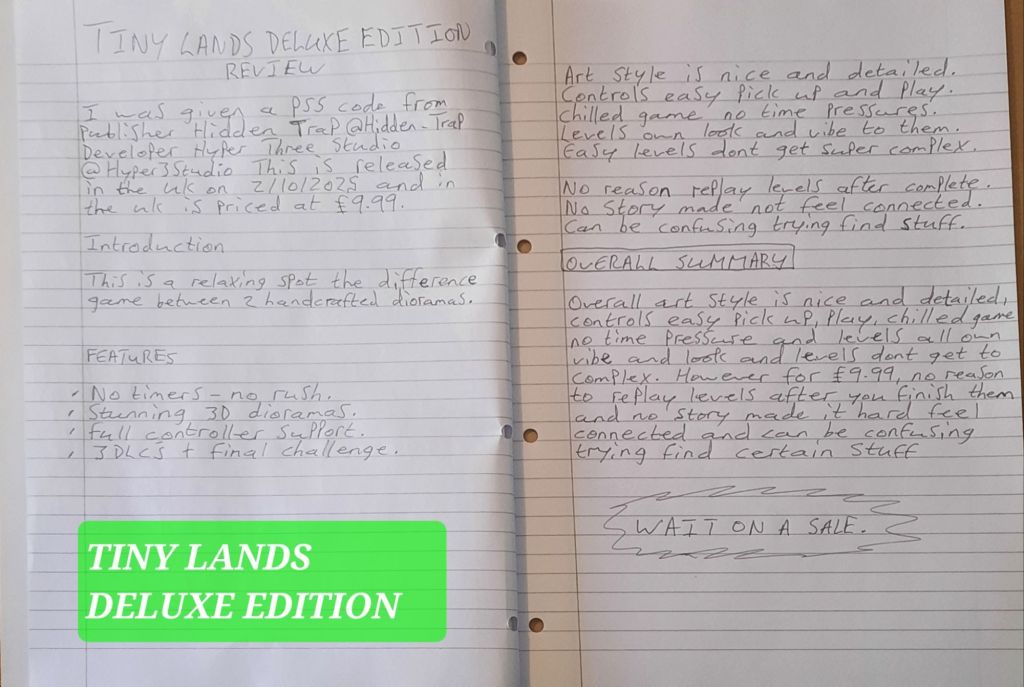 TINY LANDS DELUXE EDITION
REVIEW
I was given a PS5 code from
Publisher Hidden Trap @Hidden_Trap
Developer Hyper Three Studio
@Hyper3Studio This is released
in the uk on 2/10/2025 and in
the uk is priced at £9.99.
Introduction
This is a relaxing spot the difference
game between 2 handcrafted dioramas.
FEATURES
, No timers - no rush.
, Stunning 3D dioramas.
, full controller support.
, 3DLCS + final challenge.
TINY LANDS
DELUXE EDITION
Art Style is nice and detailed.
Controls easy Pick up and Play.
Chilled game no time Pressures.
Levels own look and vibe to them.
Easy levels dont get super complex.
No reason replay levels after complete.
No Story made not feel connected.
Can be confusing trying find stuff.
OVERALL SUMMARY
Overall art style is nice and detailed,
controls easy Pick up, Play, chilled game
no time Pressure and levels all own
vibe and look and levels dont get to
complex. However for £9.99, no reason
to replay levels after you finish them
and no story made it hard feel
connected and can be confusing
trying find certain stuff
WAIT ON A SALE.